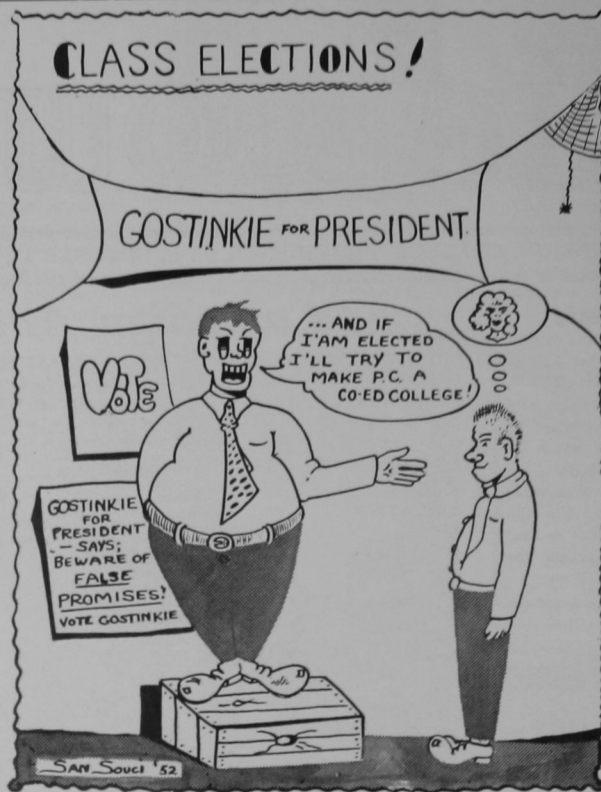 CLASS ELECTIONS!
GOSTINKIE FOR PRESIDENT
... AND IF
I'AM ELECTED
I'LL TRY TO
MAKE P.C. A
CO-ED COLLEGE!
VOTE
GOSTINKIE
FOR
PRESIDENT
- SAYS;
BEWARE OF
FALSE
PROMISES!
VOTE GOSTINKIE
SAN SOUCI '52